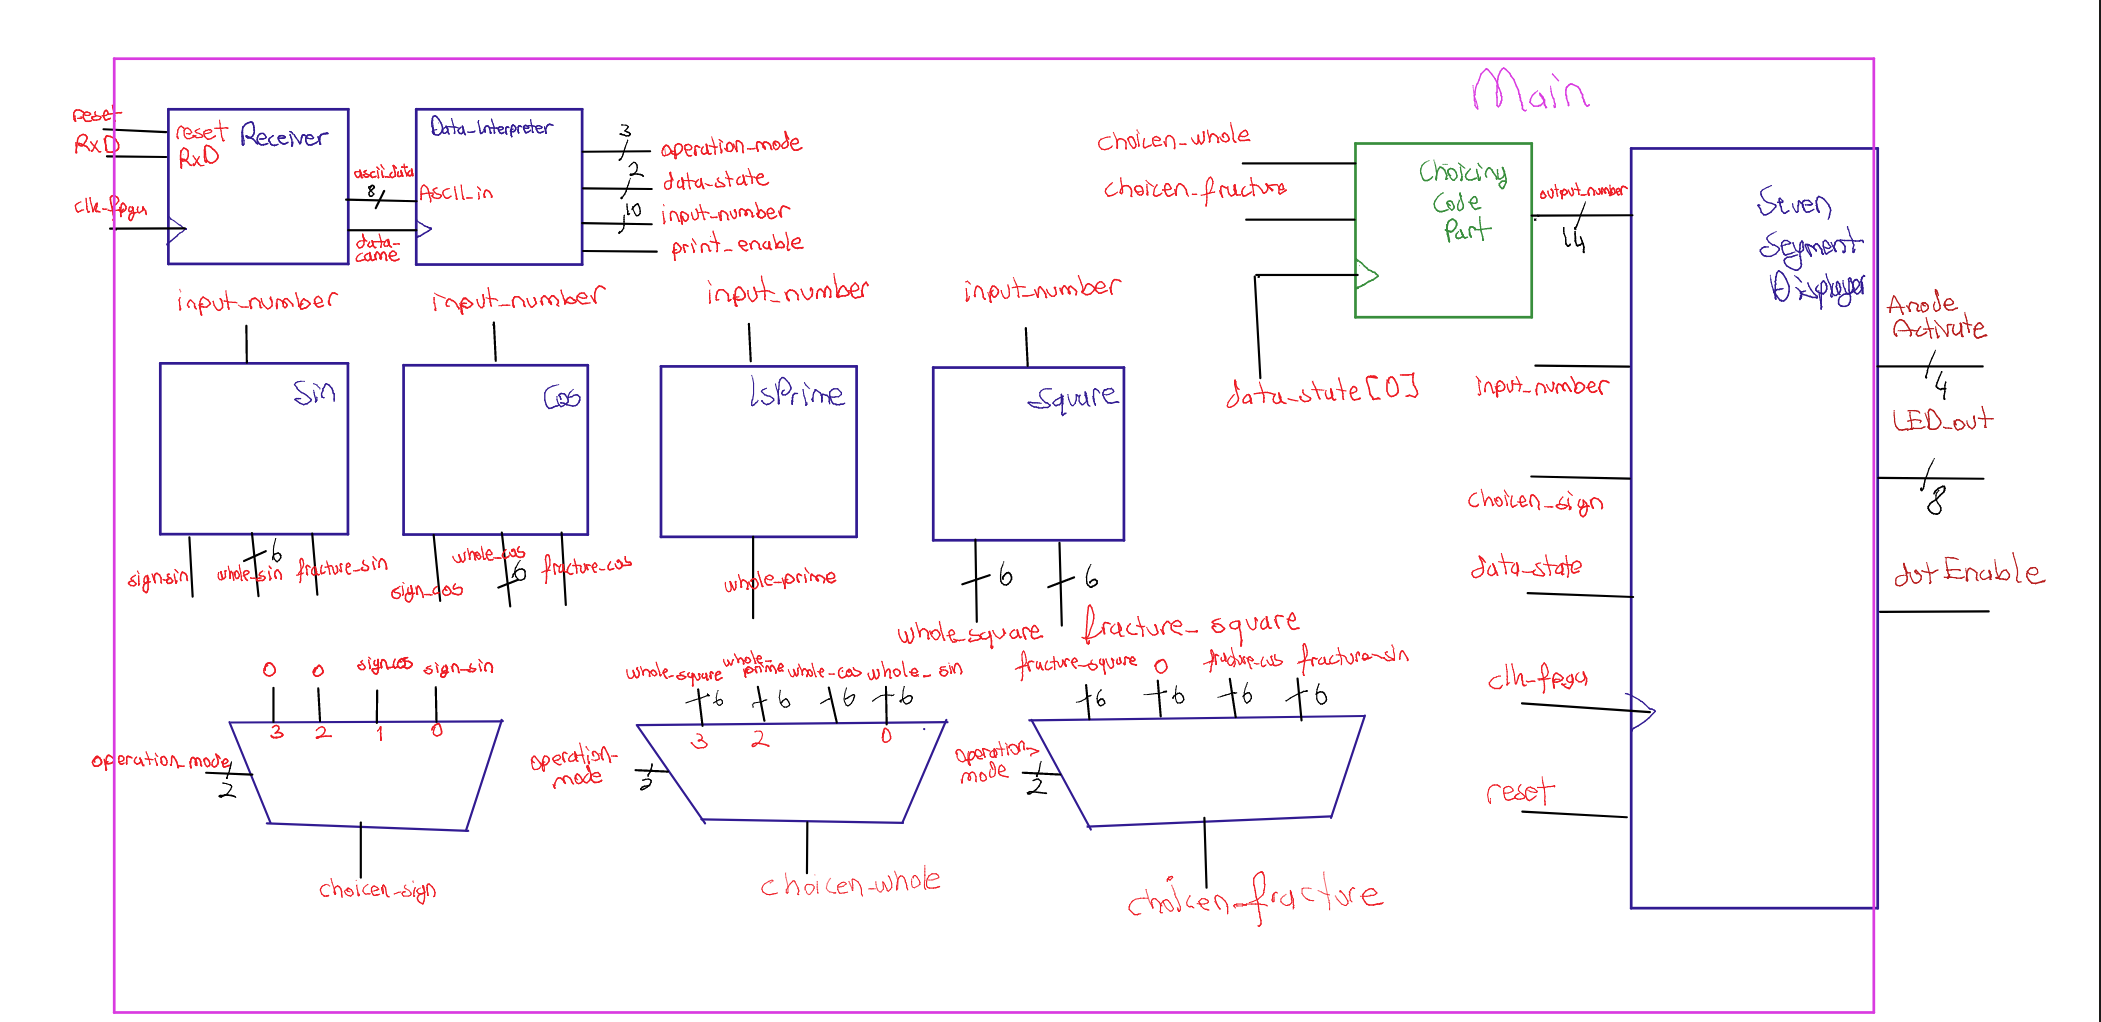 Main
reset
RxD
clk-fpga
reset
RxD
Receiver
ascii_data
8
data-
came
Data-Interpreter
ASCII_in
3
operation_mode
2
data-state
10
input_number
print_enable
choicen_whole
choicen-fracture
Choicing
Code
Part
data-state[0]
output_number
14
Seven
Segment
Displayer
input_number
choicen_sign
data-state
clk-fpga
reset
Anode
Activate
4
LED_out
8
dotEnable
input_number
Sin
sign-sin
6
whole_sin
fracture-sin
input_number
Cos
sign_cos
whole_cos
6
fracture-cos
input_number
IsPrime
whole-prime
input_number
Square
6
6
whole_square
fracture_square
0
0
sign-cos
sign_sin
3
2
1
0
operation_mode
2
choicen-sign
whole-square
whole-
prime
whole-cos
whole_sin
6
6
6
6
3
2
0
operation-
mode
2
choicen-whole
fracture-square
0
fracture-cos
fracture-sin
6
6
6
6
operation-
mode
2
choicen-fracture